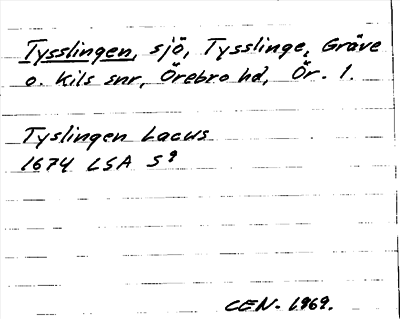 Tysslingen, sjö, Tysslinge, Gräve
o. Kils snr, Örebro hd, Ör. l.
Tyslingen Lacus
1674 LSA S9
CEN. 1969.